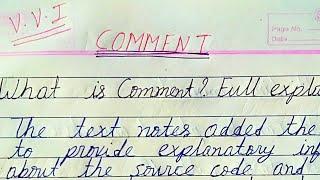 V.V.I
Page No.
Date
COMMENT
What is Comment? Full expla
The text notes added the
to provide explanatory inf
about the source code, and